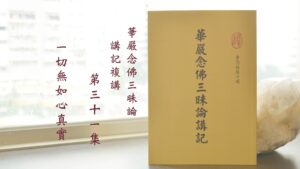 華嚴念佛三昧論
講記複講
第三十一集
一切無如心真實
華嚴念佛三昧論講記